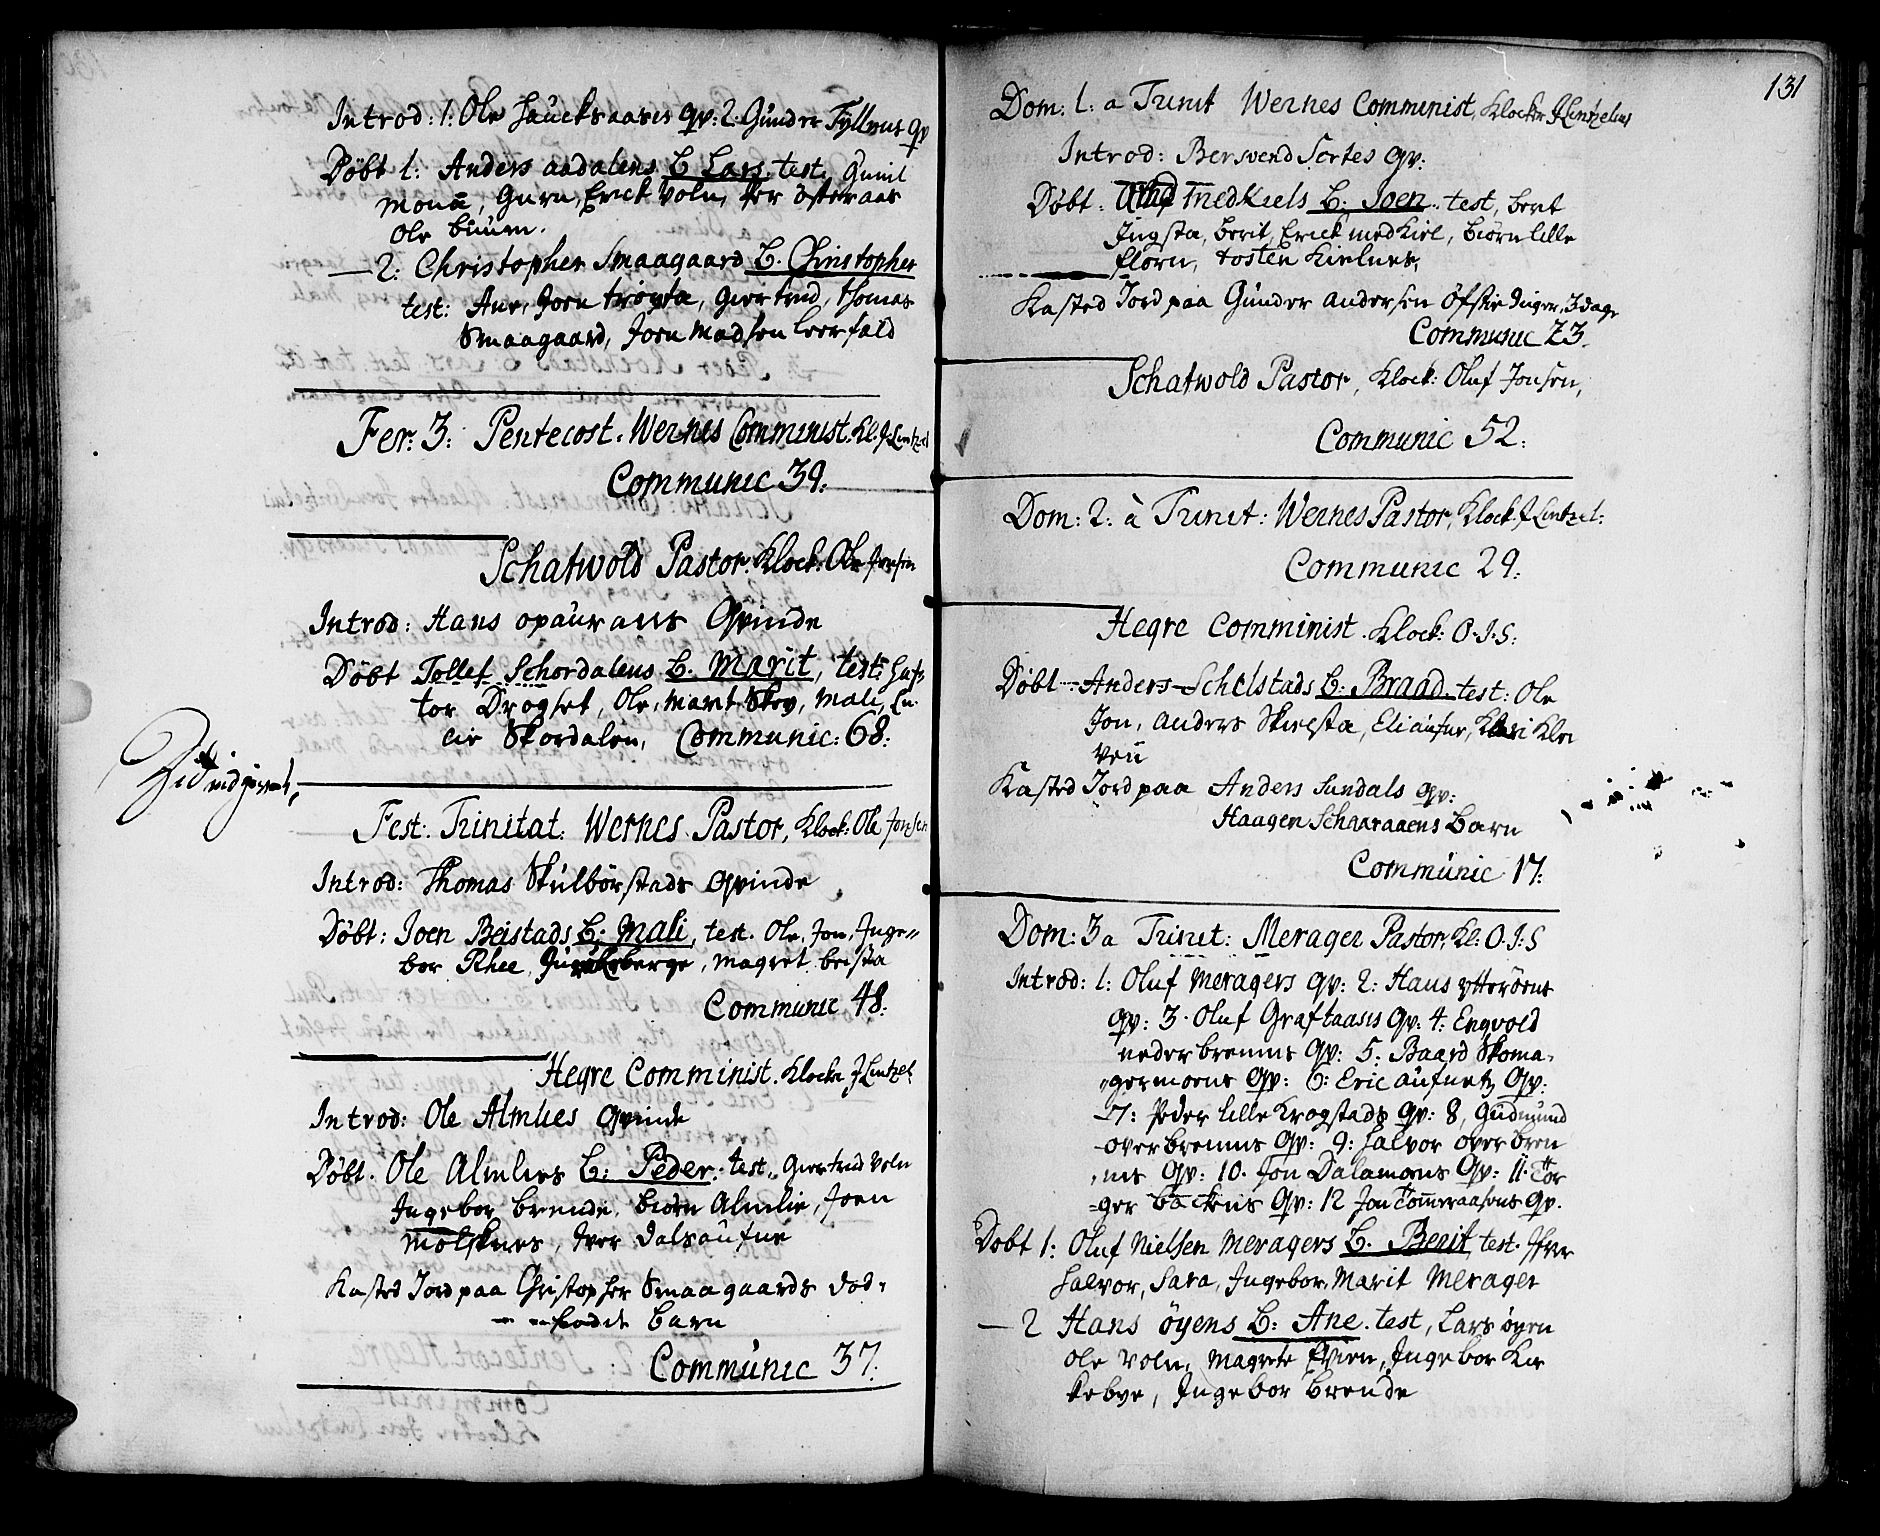 Introd: 1: Ole Hauckraasis qv: 2. Gunder Fyllens qv
Døbt 1: Anders aadalens B Lars. test. Gunil
monā, Guru, Erick Voln, Per østeraas
Ole biuurn.
—2: Christopher Smaagaard B. Christopher
test: Ane, Joen trøyta, Giertrud, thomas
Smaagaard, Joen Madsen leerfald
Fer. 3: Pentecost. Wernes Comminist. Kl. J. Lintzel
Communic 39:
Schatwold Pastor. Klock: Ole Jonsen
Introd: Hans opauraus Qvinde
Døbt Tollef Schordalens B. Marit, test:
tor Drogset, Ole, marit Skey, mali, Lu
cie Skordalen, Communic: 68:
Fest. Trinitat: Wernes Pastor, Klock: Ole Jonsen
Introd: Thomas Skulbørstads Qvinde
Døbt: Joen Beistads B: Mali, test. Ole, Jon, Inge„
bor Rhee, magret beista
Communic 48:
Hegre Comminist. Klocker J Lintzel
Introd: Ole Almlies Qvinde
Døbt. Ole Almlies B: Peder. test. Giertrud Voln
Ingebor brende, biørn Almlie, Joen
mølsknes, Iver dalsaufne
Kasted Jord paa Christopher Smaagaards død-
fødde barn
Communic 37:
131
Dom: 1: a Trinit Wernes Comminist, Klocker J Lintzelius
Introd: Bersvend Sertes qv:
Døbt: medkiels B. Joen. test, berit
Ingsta, berit, Erick medkiel, biørn lille
florn, tosten kielnes,
Kasted Jord paa Gunder andersen øfstie dinger, 3 dage
Communic 23.
Schatwold Pastor, Klock: Oluf Jonsen,
Communic 52:
Dom: 2: à Trinit: Wernes Pastor, Klock. J Lintzel:
Communic 29:
Hegre Comminist. Klock: O. J. S:
Døbt: Anders Schelstads B: Braad. test: Ole
Jon, anders Skielsta, Eli aufne, Klari Kle
ven
Kasted Jord paa Anders Sundals qv:
Haagen Schaaraaens Barn
Communic 17:
Dom: 3 a Trinit: Merager Pastor, Kl: O. J: S
Introd: 1: Oluf Meragers qv: 2: Hans ytterøens
qv: 3. Oluf Graftaasis Qv: 4: Engvold
nederbremns Qv: 5: Baard Skoma-
germoens Qv: 6: Eric aufnets Qv:
-7: Peder lille Krogstads Qv: 8, Gudmund
overbremns Qv: 9: halvor overbrem
ns Qv: 10. Jon Dalamoens Qv: 11. Tor
ger backens Qv: 12 Jon tomeraasens Qv.
Døbt 1: Oluf Nielsen Meragers B. Berit, test. Iver
halvor, Sara, Ingebor, Marit Merager
—2 Hans øyens B: Ane. test, Lars øyen
Ole Voln, Magrete Evien, Ingebor Kir
kebye, Ingebor brende